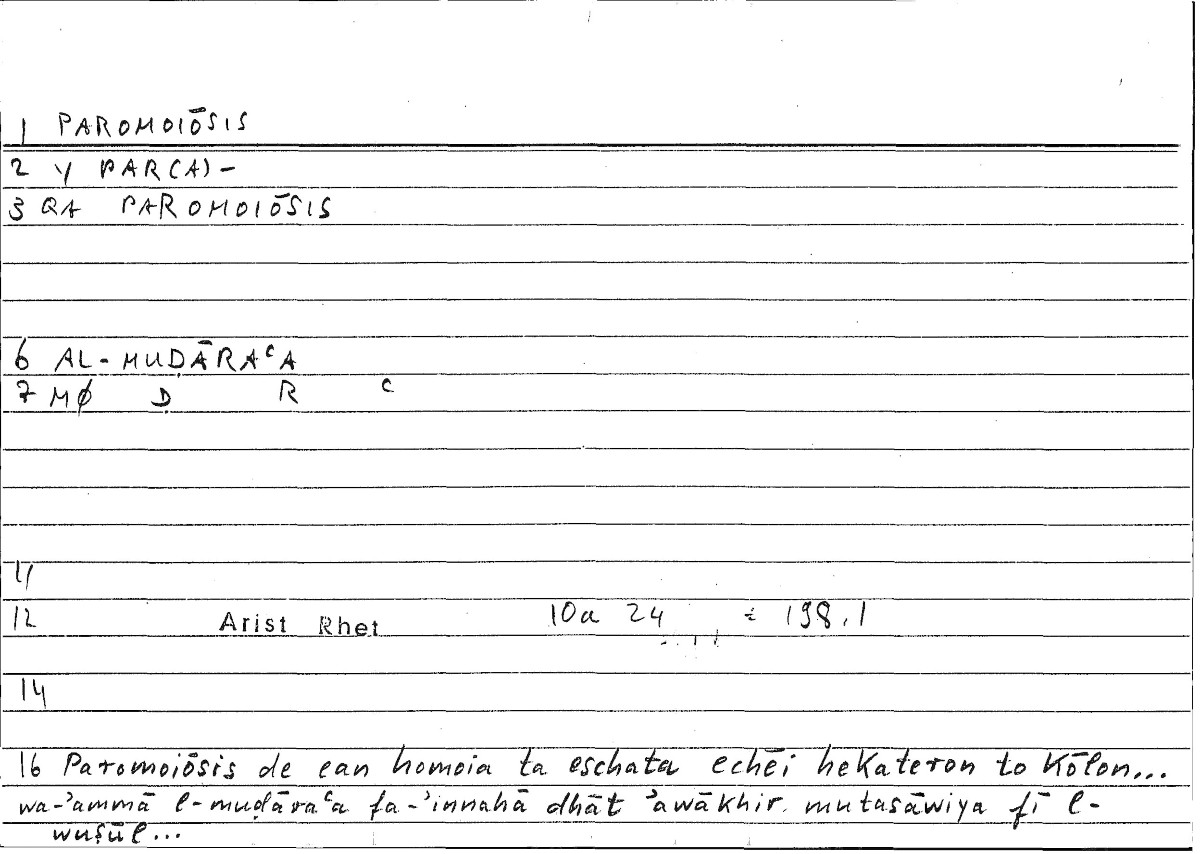 1 PAROMOIŌSIS
2 Y PAR(A)-
3 QA PAROMOIŌSIS
6 AL-MUḌĀRAᶜA
7 MØ Ḍ R ᶜ
11
12 Arist Rhet 10a 24 = 198.1
14
16 Paromoiōsis de ean homoia ta eschata echēi hekateron to kōlon...
wa-ʾammā l-muḍāraᶜa fa-ʾinnahā dhāt ʾawākhir mutasāwiya fī l-
wuṣūl...